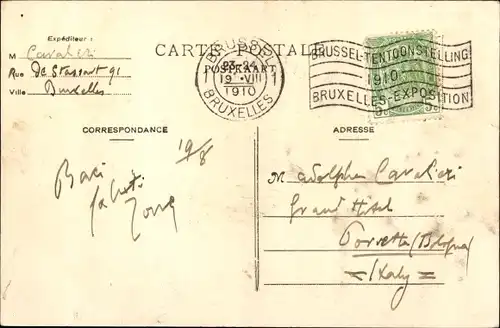 Expéditeur :
M Cavalieri
Rue de Stassart 91
Ville Bruxelles
CARTE POSTALE
POSTKAART
BRUSSEL
23-24
19 VIII
1910
BRUXELLES
1
BRUSSEL-TENTOONSTELLING
1910
BRUXELLES-EXPOSITION
5 5
CORRESPONDANCE
ADRESSE
19/8
Baci
saluti
M Adolphe Cavalieri
Grand Hotel
Porretta (Bologna)
= Italy =